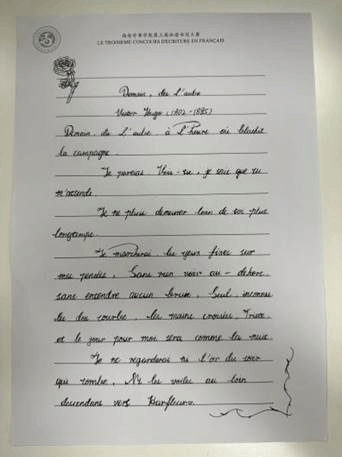 西安外事学院第三届法语书写大赛
LE TROISIEME CONCOURS D'ECRITURE EN FRANÇAIS
Demain, dès l'aube
Victor Hugo (1802 - 1885)
Demain, dès l'aube, à l'heure où blanchit
la campagne.
Je partirai. Vois-tu, je sais que tu
m'attends.
Je ne puis demeurer loin de toi plus
longtemps.
Je marcherai les yeux fixés sur
mes pensées, Sans rien voir au-dehors,
sans entendre aucun bruit, Seul, inconnu
le dos courbé, les mains croisées, Triste
et le jour pour moi sera comme la nuit.
Je ne regarderai ni l'or du soir
qui tombe, Ni les voiles au loin
descendant vers Harfleur.